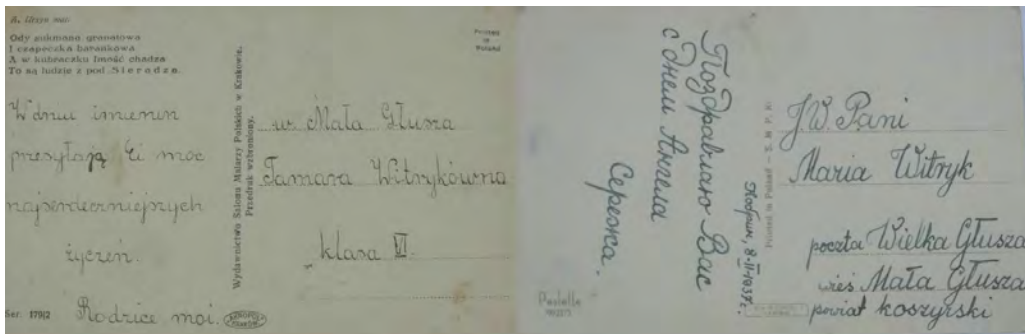 B. Grzyn mal.
Gdy sukmana granatowa
I czapeczka barankowa
A w kubraczku Imość chadza
To są ludzie z pod Sieradza.
W dniu imienin
przesyłają Ci moc
najserdeczniejszych
życzeń.
Rodzice moi.
Ser. 179/2
Wydawnictwo Salonu Malarzy Polskich w Krakowie.
Przedruk wzbroniony.
Printed
in
Poland
w. Mała Głusza
Tamara Witrykówna
klasa VI.
Поздравляю Вас
с днем Ангела
Сережа.
Кобрин, 8-II-1937г.
Pastello
Printed in Poland
J.W. Pani
Maria Witryk
poczta Wielka Głusza
wieś Mała Głusza
powiat koszyrski